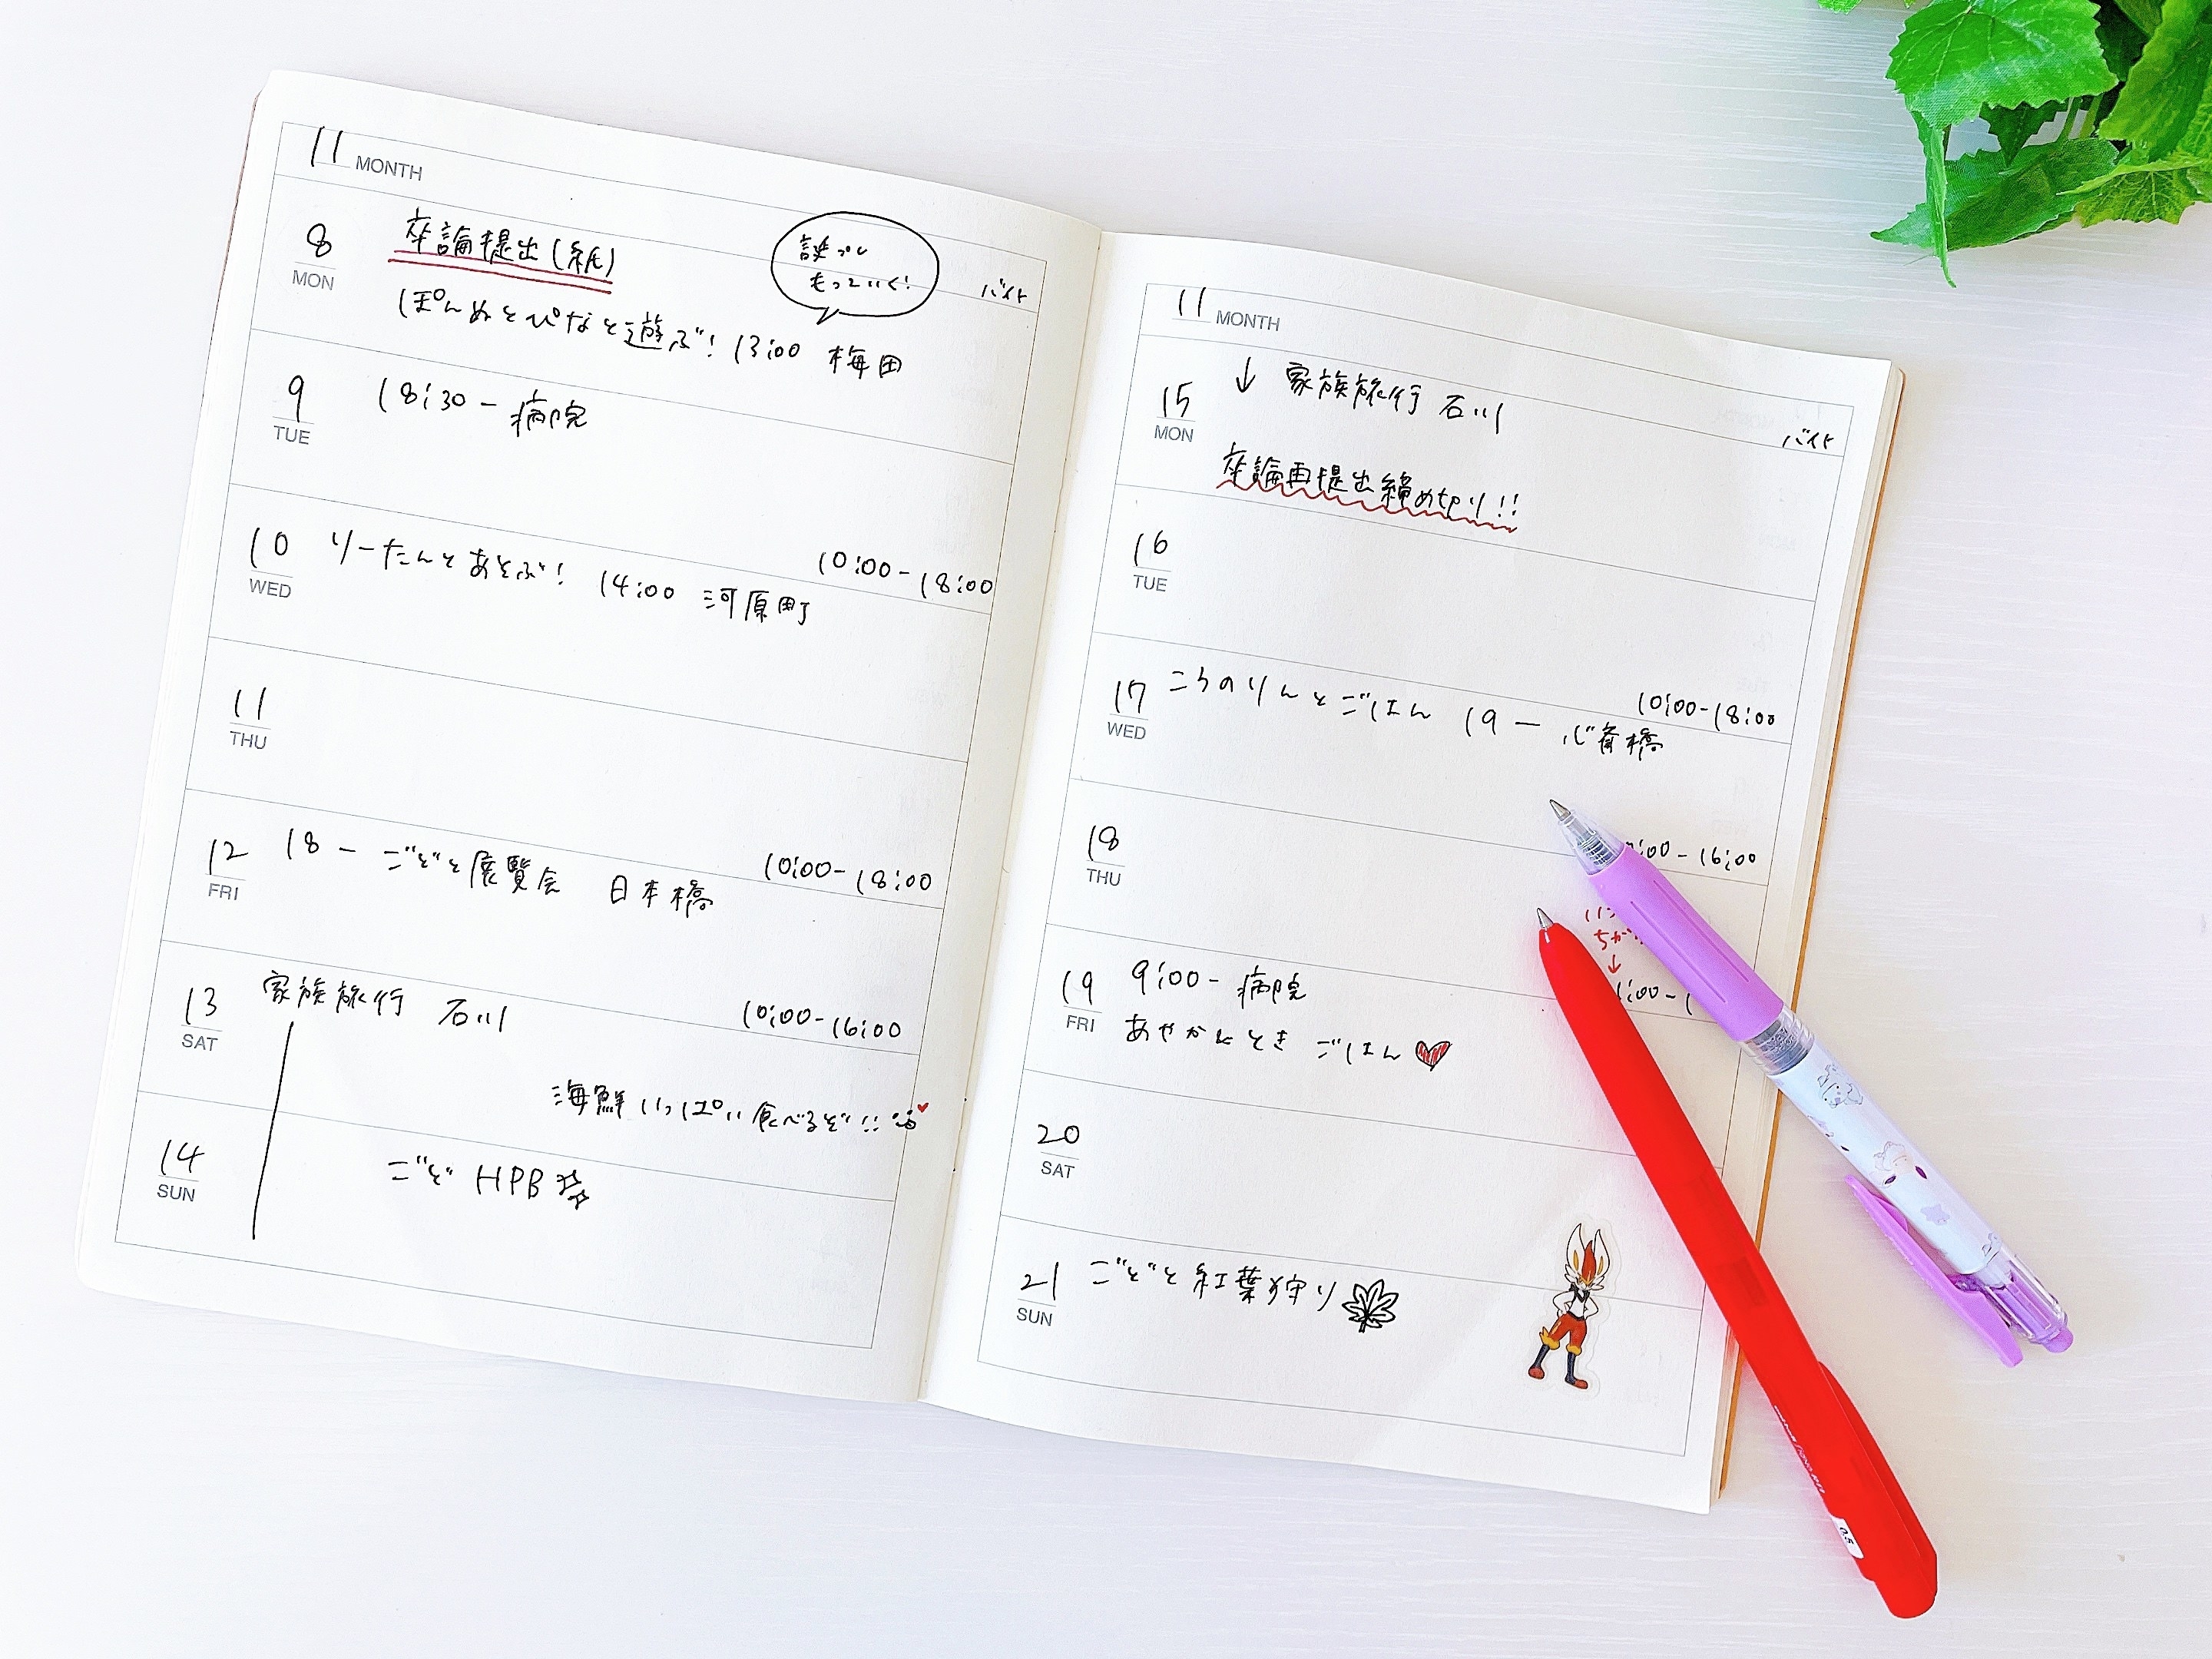 11 MONTH
8 MON
卒論提出(紙)
誕プレ
もっていく!
バイト
ぽんぬとぴなと遊ぶ! 13:00 梅田
9 TUE
18:30- 病院
10 WED
りーたんとあそぶ! 14:00 河原町
10:00-18:00
11 THU
12 FRI
18- ごどと展覧会 日本橋
10:00-18:00
13 SAT
家族旅行 石川
10:00-16:00
海鮮いっぱい食べるぞ!!
14 SUN
ごど HPB
11 MONTH
15 MON
↓ 家族旅行 石川
バイト
卒論再提出締め切り!!
16 TUE
17 WED
ころのりんとごはん 19- 心斎橋
10:00-18:00
18 THU
:00-16:00
19 FRI
9:00- 病院
↓
:00-1
ごはん♥
20 SAT
21 SUN
ごどと紅葉狩り
0.5